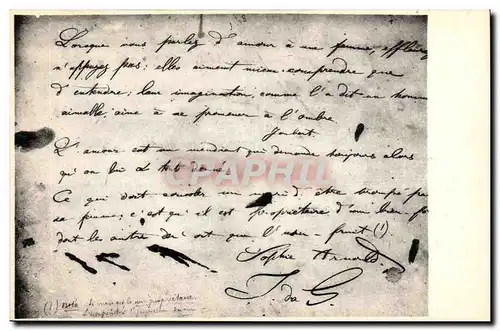 Lorsque vous parlez d'amour à une femme,
n'appuyez pas: elles aiment mieux comprendre que
d'entendre; leur imagination, comme l'a dit un homme
aimable, aime à se promener à l'ombre.
Joubert.
L'amour est un mendiant qui demande toujours alors
qu'on lui a tout donné.
Ce qui doit consoler un mari d'être trompé par
sa femme, c'est qu'il est propriétaire d'un bien
dont les autres n'ont que l'usu-fruit (1)
Sophie Arnould
J. da G.
(1) Nota le
CPArama